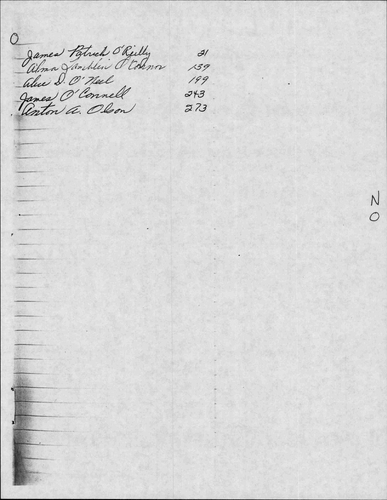 O
James Patrick O'Reilly 21
Alma O'Connor 139
Alice D. O'Neel 199
James O'Connell 243
Anton A. Olson 273
N
O